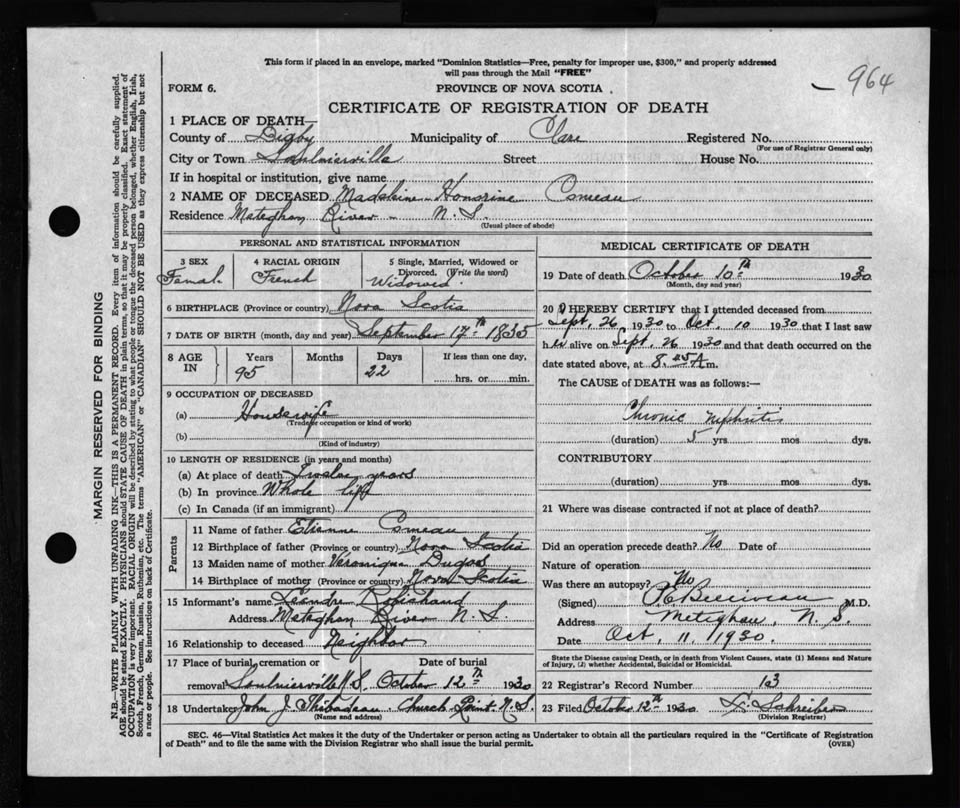 This form if placed in an envelope, marked "Dominion Statistics—Free, penalty for improper use, $300," and properly addressed
will pass through the Mail "FREE"
964
FORM 6.
PROVINCE OF NOVA SCOTIA
CERTIFICATE OF REGISTRATION OF DEATH
1 PLACE OF DEATH—
County of Digby Municipality of Clare Registered No.
(For use of Registrar General only)
City or Town Saulnierville Street House No.
If in hospital or institution, give name
2 NAME OF DECEASED Madeleine Honorine Comeau
Residence Meteghan River - N.S.
(Usual place of abode)
PERSONAL AND STATISTICAL INFORMATION
3 SEX Femal.
4 RACIAL ORIGIN French
5 Single, Married, Widowed or Divorced. (Write the word) Widowed.
6 BIRTHPLACE (Province or country) Nova Scotia
7 DATE OF BIRTH (month, day and year) September 17th 1835
8 AGE IN Years 95 Months Days 22 If less than one day, hrs. or min.
9 OCCUPATION OF DECEASED
(a) Housewife
(Trade or occupation or kind of work)
(b)
(Kind of industry)
10 LENGTH OF RESIDENCE (in years and months)
(a) At place of death years
(b) In province Whole life
(c) In Canada (if an immigrant)
Parents
11 Name of father Etienne Comeau
12 Birthplace of father (Province or country) Nova Scotia
13 Maiden name of mother Veronique Dugas
14 Birthplace of mother (Province or country) Nova Scotia
15 Informant's name Leandre Robichaud
Address Meteghan River N.S.
16 Relationship to deceased Neighbor
17 Place of burial, cremation or removal Saulnierville N.S. Date of burial October 12th 1930
18 Undertaker John J. Thibodeau Church Point N.S.
(Name and address)
MEDICAL CERTIFICATE OF DEATH
19 Date of death October 10th 1930
(Month, day and year)
20 I HEREBY CERTIFY that I attended deceased from
Sept. 26 1930 to Oct. 10 1930 that I last saw
her alive on Sept. 26 1930 and that death occurred on the
date stated above, at 8. A m.
The CAUSE of DEATH was as follows:—
Chronic Nephritis
(duration) 5 yrs mos dys.
CONTRIBUTORY
(duration) yrs mos dys.
21 Where was disease contracted if not at place of death?
Did an operation precede death? No Date of
Nature of operation
Was there an autopsy? No
(Signed) M.D.
Address Meteghan, N.S.
Date Oct, 11, 1930.
State the Disease causing Death, or in death from Violent Causes, state (1) Means and Nature
of Injury, (2) whether Accidental, Suicidal or Homicidal.
22 Registrar's Record Number 13
23 Filed October 12th 1930 Schreiber
(Division Registrar)
SEC. 46—Vital Statistics Act makes it the duty of the Undertaker or person acting as Undertaker to obtain all the particulars required in the "Certificate of Registration
of Death" and to file the same with the Division Registrar who shall issue the burial permit.
(OVER)
MARGIN RESERVED FOR BINDING
N.B.—WRITE PLAINLY WITH UNFADING INK—THIS IS A PERMANENT RECORD. Every item of information should be carefully supplied.
AGE should be stated EXACTLY. PHYSICIANS should STATE CAUSE OF DEATH in plain terms, so that it may be properly classified. Exact statement of
OCCUPATION is very important. RACIAL ORIGIN will be described by stating to what people or tongue the deceased person belonged, whether English, Irish,
Scotch, French, German, Russian, Ruthenian, etc. The terms "AMERICAN" or "CANADIAN" SHOULD NOT BE USED as they express citizenship but not
a race or people. See instructions on back of Certificate.